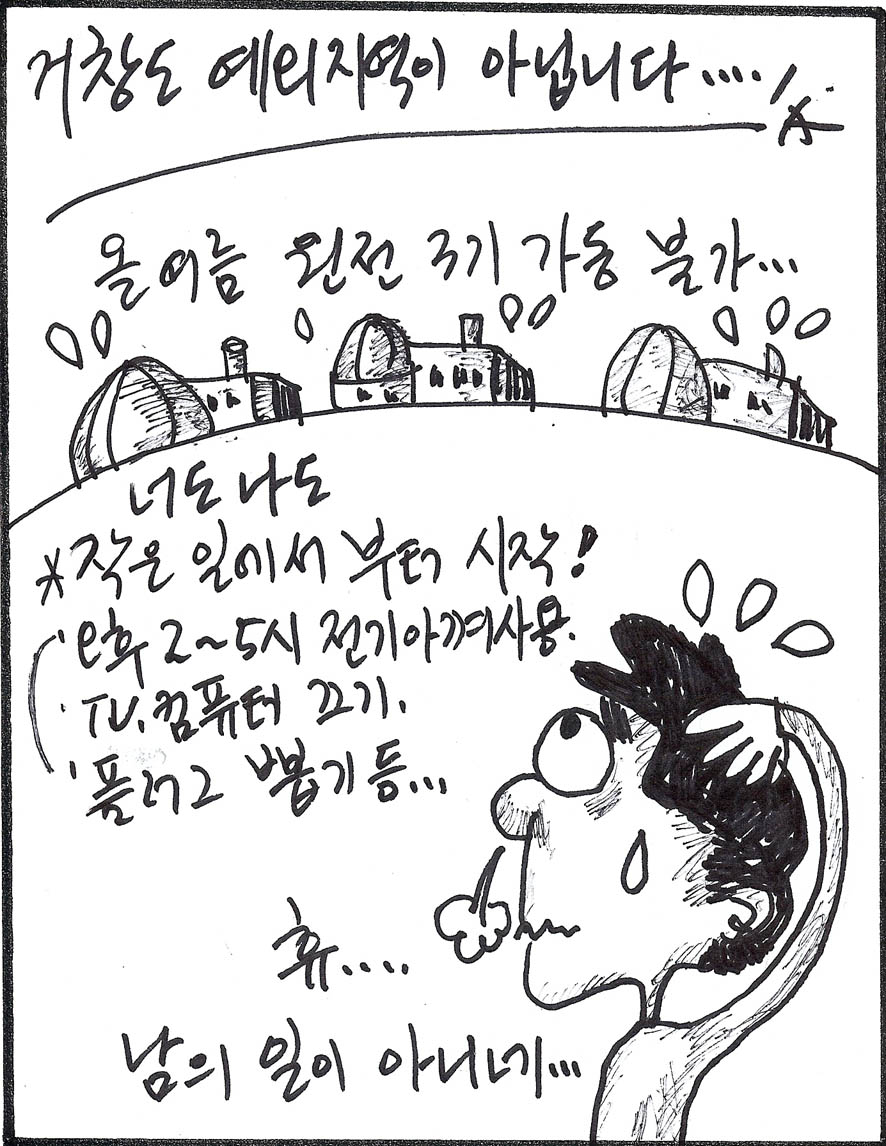 거창도 예외지역이 아닙니다....
올여름 원전 3기 가동 불가...
너도 나도
*작은 일에서 부터 시작!
오후 2~5시 전기아껴사용.
TV.컴퓨터 끄기.
플러그 뽑기 등...
휴....
남의 일이 아니네...